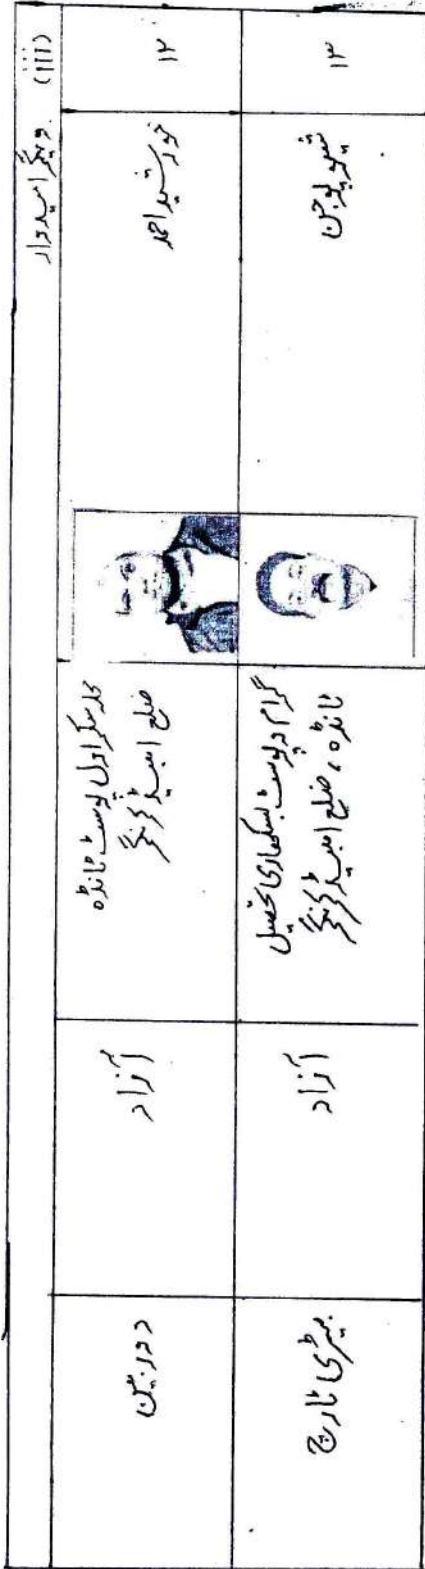 (iii) دیگر امیدوار
۱۲
خورشید احمد
محلہ سکراول پوسٹ ٹانڈہ
ضلع امبیڈکرنگر
آزاد
دوربین
۱۳
شیو پوجن
گرام و پوسٹ بسکھاری تحصیل
ٹانڈہ، ضلع امبیڈکرنگر
آزاد
بیٹری ٹارچ